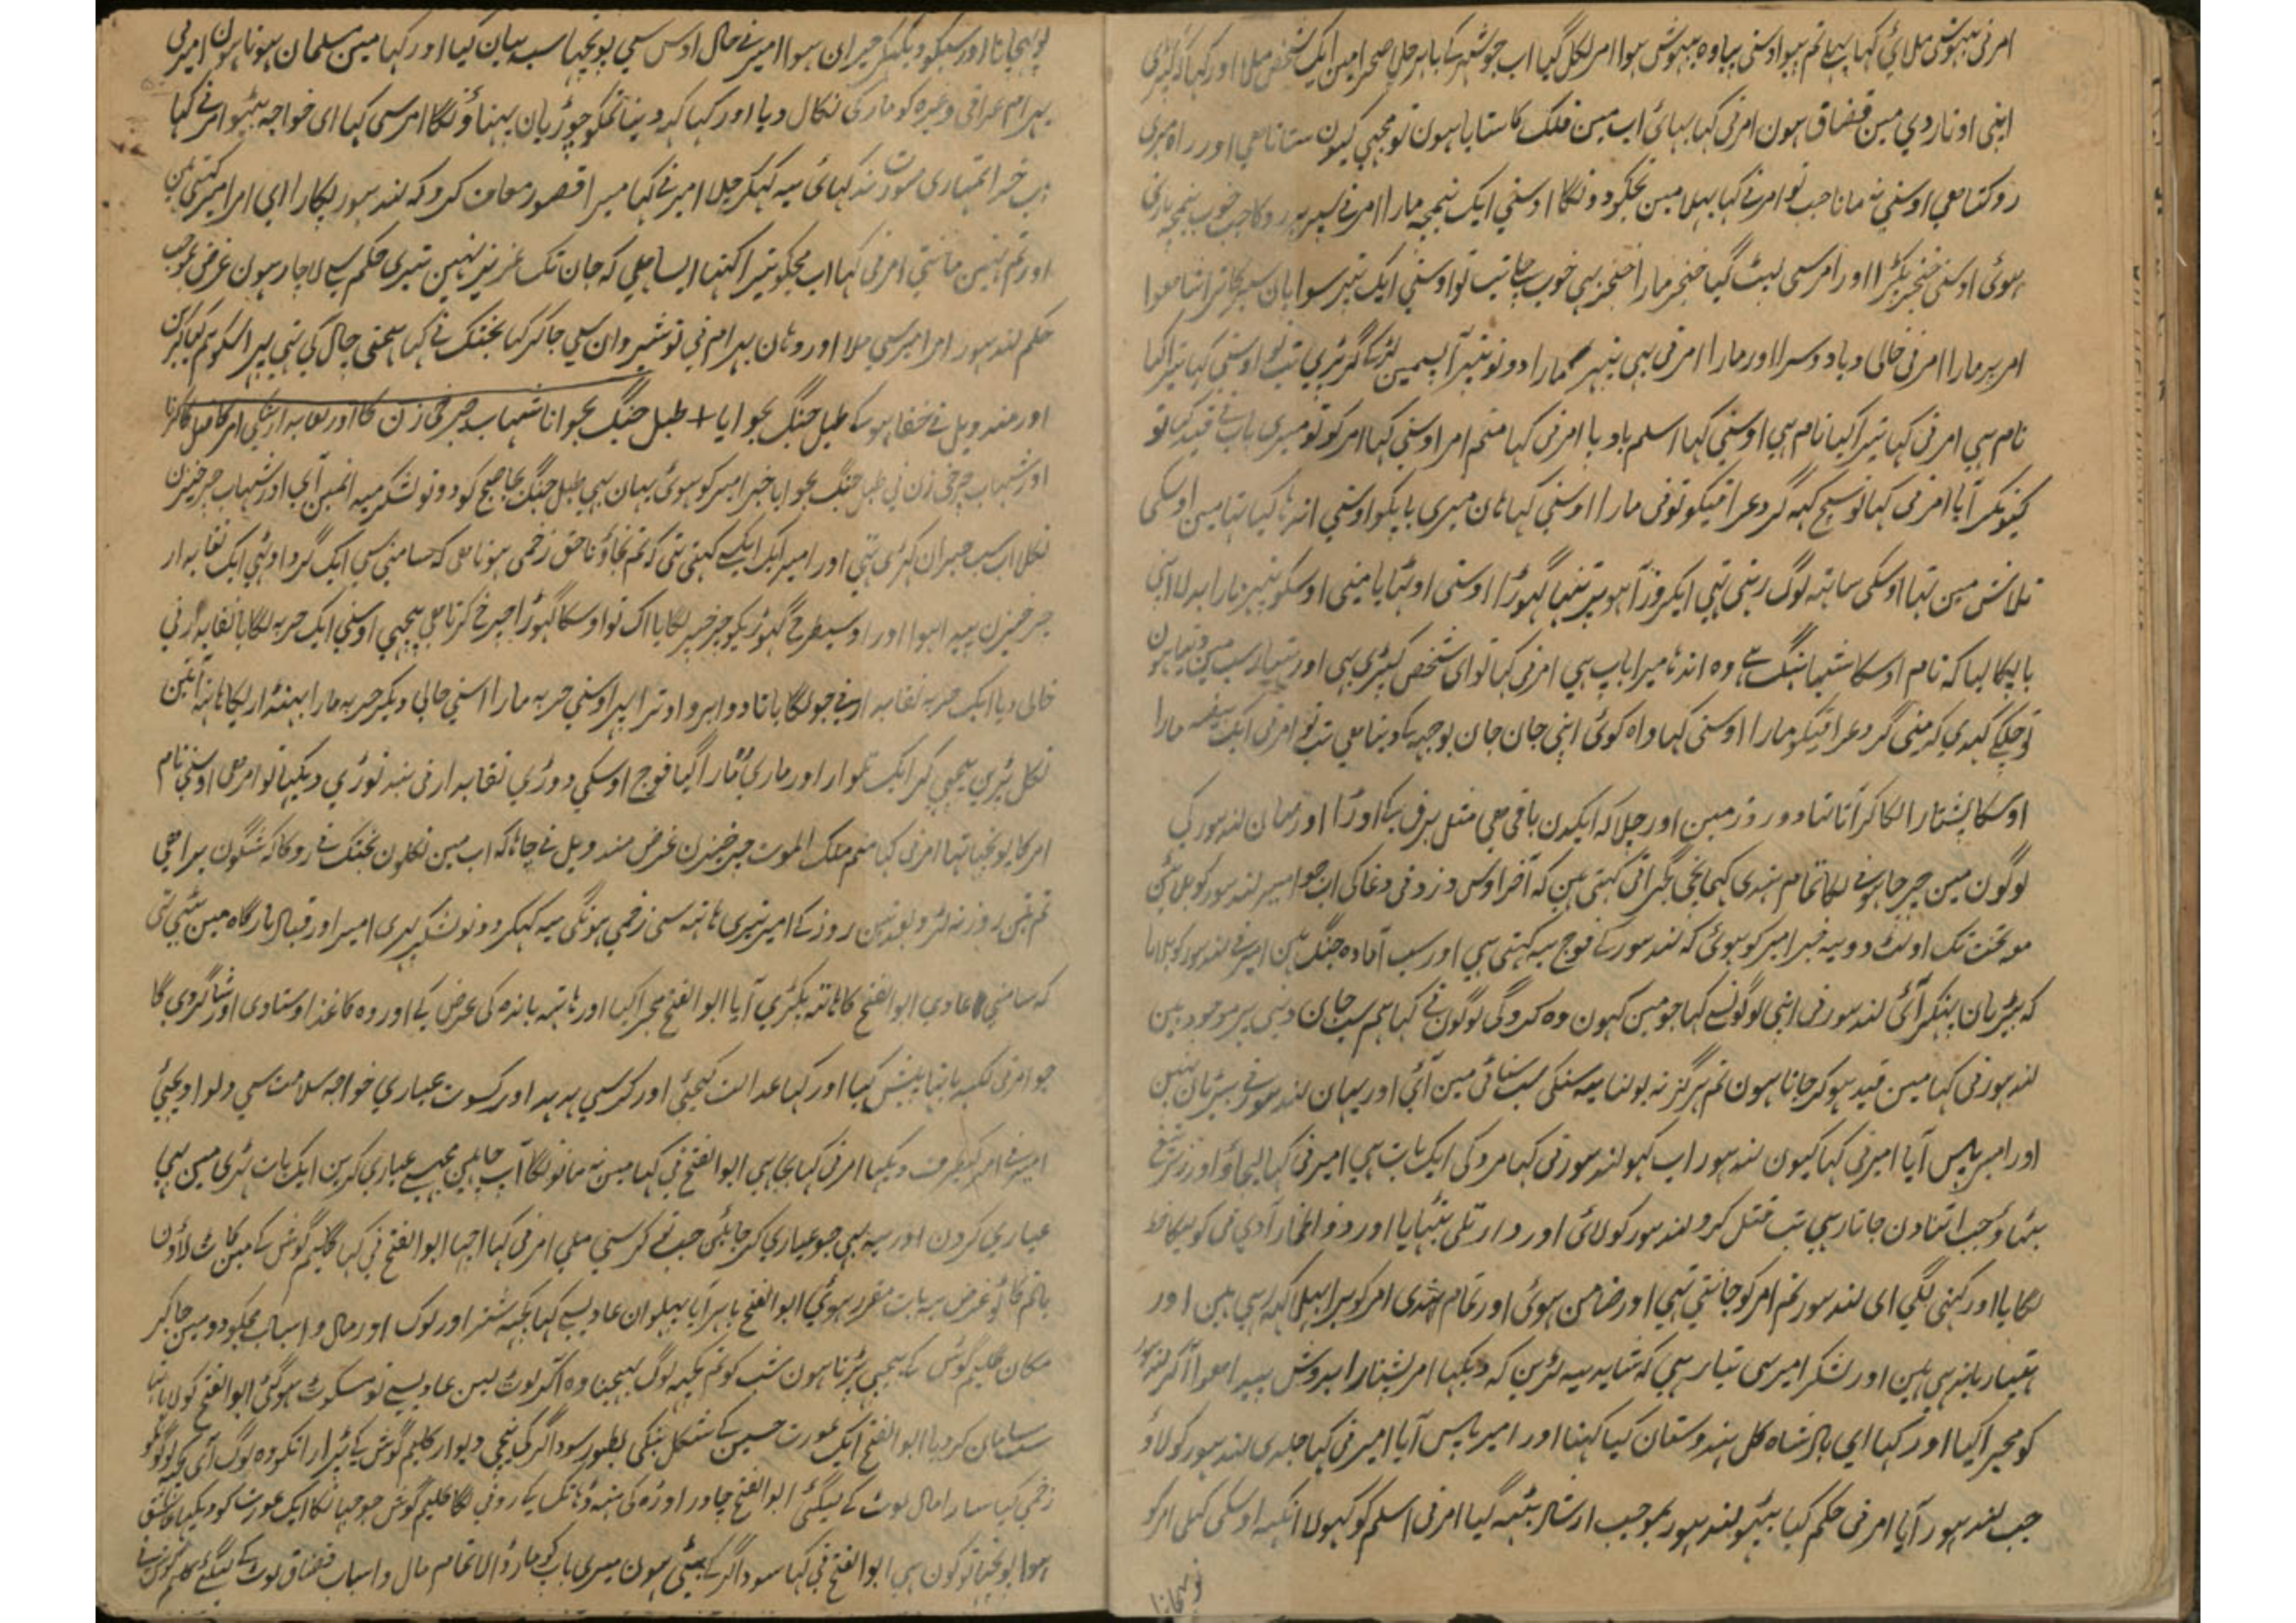 امرنی بیہوشی ملائی کہا پہلے تم پیو اوسنی پیا وہ بیہوش ہوا امر نکل گیا اب جو شہر کے باہر چلا صحرا مین ایک شخص ملا اور کہا کہ کپڑی
اپنی اوتار دی مین قضاق ہون امرنی کہا بہائی اب مین فلک کا ستایا ہون تو مجہی کیون ستاتا ہی اور راہ میری
روکتا ہی اوسنی نہ مانا جب تو امرنے کہا پہلا مین تجکو دونگا اوسنی ایک نیمچہ مارا امرنے سپر پر روکا جب خوب نیمچہ بازی
ہوئی اوسنی خنجر پکڑا اور امرسی لپٹ گیا خنجر مارا خنجر بہی خوب چلا تب تو اوسنی ایک تیر سوا
امر پر مارا امرنی خالی دیا دوسرا اور مارا امرنی بہی تیر مارا دونو تیر آپسمین لڑکے گر پڑی تب تو اوسنی کہا تیرا کیا
نام ہی امرنی کہا تیرا کیا نام ہی اوسنی کہا اسلم باد پا امرنی کہا منم امر اوسنی کہا امر کو تو میری باپ نے قید کیا تو
کیونکر آیا امرنی کہا تو سچ کہہ گرد عراقیکو تونی مارا اوسنی کہا ہان میری باپکو اوسنی اندہا کیا تہا مین اوسکی
تلاش مین تہا اوسکی ساتہ لوگ رہتی تہی ایکروز آہو پر تنہا گہوڑا اوسنی اوٹہایا مینی اوسکو تیر مارا بدلا اپنی
باپکا لیا کہ نام اوسکا ہی وہ اندہا میرا باپ ہی امرنی کہا تو ای شخص کپڑی ہی اور ہتیار سب مین دیتا ہون
تو چلکے کہدی کہ مینی گرد عراقیکو مارا اوسنی کہا واہ کوئی اپنی جان جان بوجہہ کے دیتا ہی تب تو امرنی ایک مارا
اوسکا پشتارا لگا کر آتا تہا دو روز مین اور چلا کہ ایکدن باقی ہی مثل برق کے اوڑا اور یہان لندہور کی
لوگون مین چرچا ہونے لگا تمام ہندی کہتی ہین کہ آخر اوس دزد نی دغا کی اب جو امیر لندہور کو بلائین
تو تخت تک اولٹ دو یہ خبر امیر کو ہوئی کہ لندہور کے فوج یہ کہتی ہی اور سب آمادہ جنگ ہین امیر نے لندہور کو بلایا
کہ بیڑیان پہنکر آئی لندہور نی اپنی لوگونسے کہا جو مین کہون وہ کروگی لوگون نے کہا ہم سب جان دینی پر موجود ہین
لندہور نی کہا مین قید ہوکر جاتا ہون تم ہرگز نہ بولنا یہ سنکی سب سناٹی مین آئی اور یہان لندہور نے بیڑیان پہنین
اور امیر پاس آیا امیرنی کہا کیون لندہور اب کہو لندہور نی کہا مرد کی ایک بات ہی امیرنی کہا لیجاؤ اور زیر تیغ
بٹہاؤ جب اتنا دن جاتا رہی تب قتل کرو لندہور کو لائی اور دار تلی بٹہایا اور ذوالخمار آدی
لگایا اور کہنی لگی ای لندہور تم امر کو جانتی تہی اور ضامن ہوئی اور تمام ہندی امر کو برا بہلا کہہ رہی ہین اور
ہتیار باندہی ہین اور لشکر امیر سی تیار ہی کہ شاید یہ لڑین کہ دیکہا امر پشتارا بردوش پیدا ہوا آکر لندہور
کو مجرا کیا اور کہا ای بادشاہ کل ہندوستان کیا کہنا اور امیر پاس آیا امیرنی کہا جلدی لندہور کو لاؤ
جب لندہور آیا امرنی حکم کیا بیٹہو لندہور بموجب ارشاد بیٹہہ گیا امرنی اسلم کو کہولا آنکہہ اوسکی کہلی امر کو
تو پہچانا
پہچانا اور سبکو دیکہکر حیران ہوا امیرنے حال اوس سی پوچہا سب بیان کیا اور کہا مین مسلمان ہوتا ہون امیرنی
بہرام عراقی وغیرہ کو مار کی نکال دیا اور کہا کہہ دینا تمکو چوڑیان پہناؤنگا امرسی کہا ای خواجہ بیٹہو امرنے کہا
اب خدا تمہاری صورت نہ دکہائی یہ کہکر چلا امیرنے کہا میرا قصور معاف کرو کہ لندہور پکارا ای امر امیر کہتی ہین
اور تم نہین مانتی امرنی کہا اب مجکو تیرا کہنا ایسا ہی کہ جان تک عزیز نہین تیری حکم سے لاچار ہون غرض بموجب
حکم لندہور امر امیرسی ملا اور وہان بہرام نی نوشیروان سی جا کر کہا بختک نے کہا سخنی چال کی تہی پر
اور مندویل نے خفا ہوکے طبل جنگ بجوایا + طبل جنگ بجوانا شہاب چرخی زن کا اور نقابدار بنکی امر کا قتل کرنا
اور شہاب چرخی زن نی طبل جنگ بجوایا خبر امیر کو ہوئی یہان بہی طبل جنگ بجا صبح کو دونو لشکر میدانمین آئی اور شہاب چرخیزن
نکلا اب سب حیران کہڑی تہی اور امیر ایک ایکسے کہتی تہی کہ تم نجاؤ ناحق زخمی ہونا ہی کہ سامنی سی ایک گرد اوٹہی ایک نقابدار
چرخیزن پیدا ہوا اور اوسیطرح گہوڑیکو چرخ پر لگایا اک تو اوسکا گہوڑا چرخ کرتا ہی پیچہی اوسنی ایک حربہ لگایا نقابدارنی
خالی دیا ایک حربہ نقابدارنے جو لگایا تا دو ابرو اوترا پہر اوسنی حربہ مارا اسنی خالی دیکر حربہ مارا بہنڈار یکا ہاتہ آنتین
نکل پڑین پیچہی کر ایک تلوار اور ماری مارا گیا فوج اوسکی دوڑی نقابدارنی منہ توڑی دیکہا تو امر ہی اوسنی نام
امر کا پوچہا تہا امرنی کہا منم ملک الموت چرخیزن غرض مندویل نے چاہا کہ اب مین نکلون بختک نے روکا کہ شگون برا ہی
تم تین روز نہ لڑو بعد تین روز کے امیر تیری ہاتہ سی زخمی ہونگی یہ کہکر دونو لشکر پہری امیر اور قباد بارگاہ مین بیٹہی تہی
کہ سامنی عادی ابوالفتح کا ہاتہ پکڑی آیا ابوالفتح مجرا کیا اور ہاتہہ باندہ کی عرض کی اور وہ کاغذ اوستادی اور شاگردی کا
جو امرنی لکہہ دیا تہا پیش کیا اور کہا عدالت کیجئی اور کرسی ہدہد اور کسوت عیاری خواجہ سلامت سی دلوا دیجئی
امیرنے امر کیطرف دیکہا امرنی کہا بجا ہی ابوالفتح نی کہا مین نہ مانونگا آپ چاہین مجہسے عیاری کرین ایک بات مین بہی
عیاری کرون اور یہ بہی جو عیاری کر جائین جب تو کرسی ملی امرنی کہا اچہا ابوالفتح نی کہا کلیم گوش کے مین کاٹ لاؤن
یا تم کاٹو غرض یہ بات مقرر ہوئی ابوالفتح باہر آیا پہلوان عادی سے کہا کچہہ شتر اور لوگ اور مال و اسباب مجکو دو مین جا کر
مکان کلیم گوش کے پیچہی پڑتا ہون شب کو تم کچہہ لوگ بہیجنا وہ آکر لوٹ لین عادی سے تو مسکوٹ ہوگئی ابوالفتح کو
سب سامان کردیا ابوالفتح ایک عورت حسین کے شکل بنکی بطور سوداگر کی نیچی دیوار کلیم گوش کے پڑا رانکو وہ لوگ آئی
زخمی کیا سارا مال لوٹ کے لیگئی ابوالفتح چادر اوڑہ کی منہ ڈہانک کے رونی لگا کلیم گوش جو جہانکا ایک عورت کو دیکہا عاشق
ہوا پوچہا تو کون ہی ابوالفتح نی کہا سوداگر کے بیٹی ہون میری باپ کو مار ڈالا تمام مال و اسباب قضاق لوٹ کے لیگئی